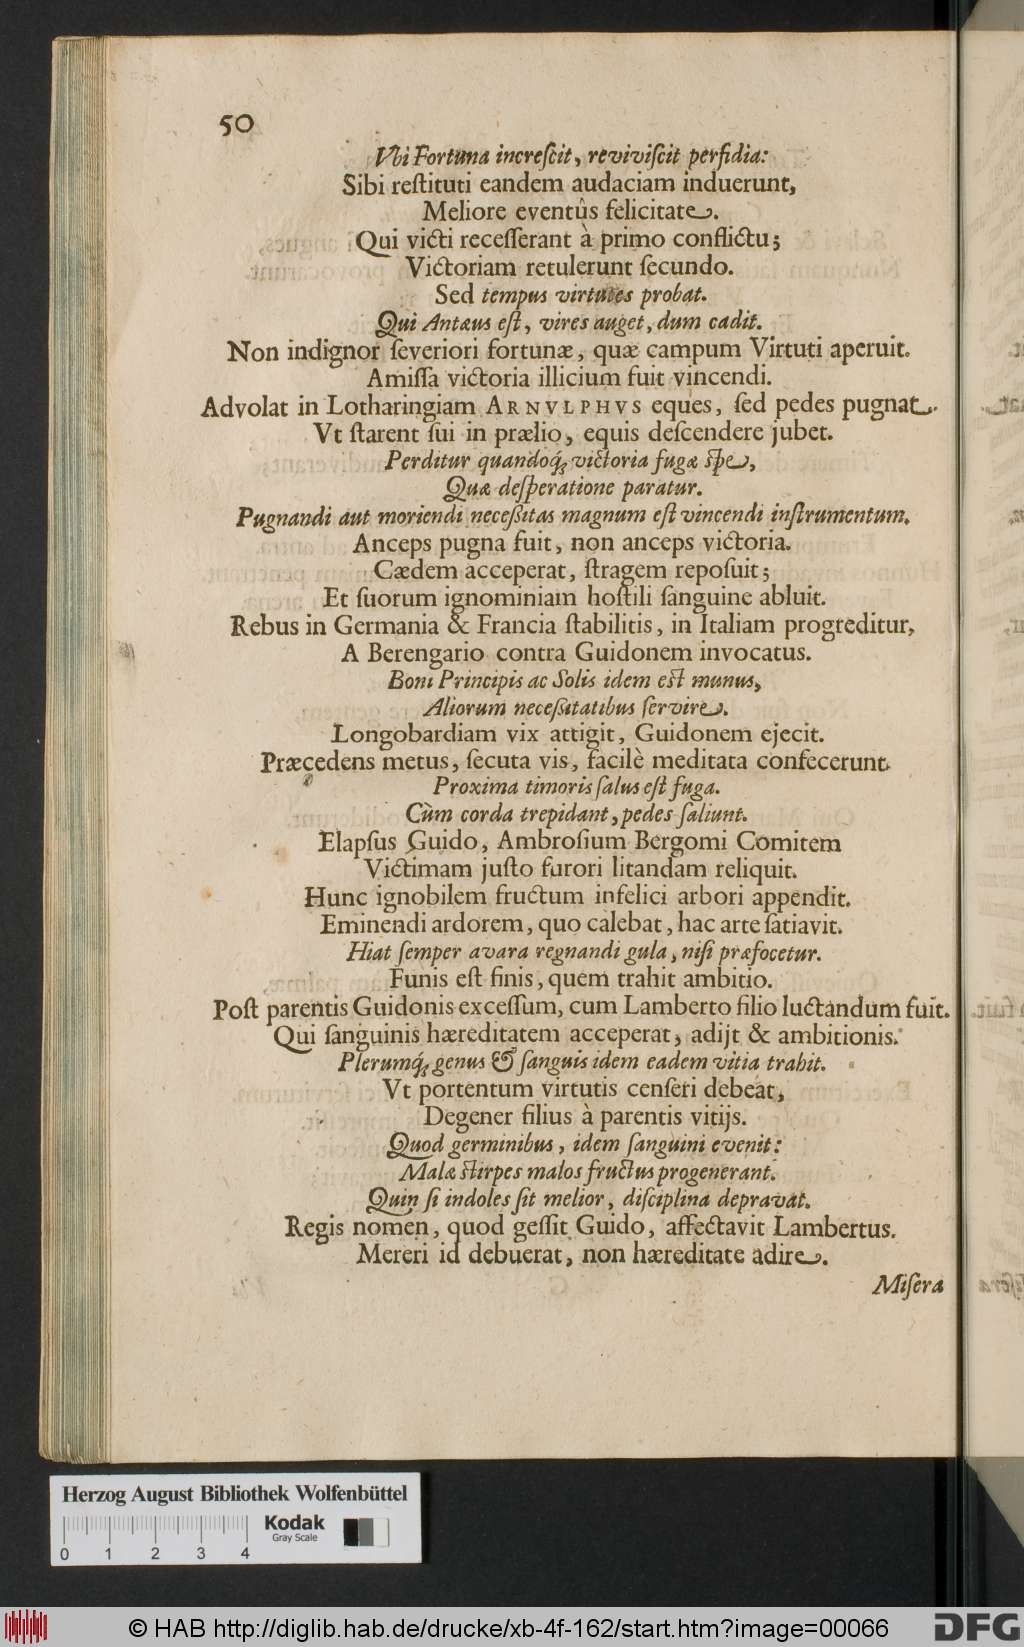 50
Vbi Fortuna increſcit, reviviſcit perfidia:
Sibi reſtituti eandem audaciam induerunt,
Meliore eventûs felicitate.
Qui victi receſſerant à primo conflictu;
Victoriam retulerunt ſecundo.
Sed tempus virtutes probat.
Qui Antæus eſt, vires auget, dum cadit.
Non indignor ſeveriori fortunæ, quæ campum Virtuti aperuit.
Amiſſa victoria illicium fuit vincendi.
Advolat in Lotharingiam ARNVLPHVS eques, ſed pedes pugnat.
Vt ſtarent ſui in prælio, equis deſcendere jubet.
Perditur quandoq́; victoria fugæ ſpe,
Quæ deſperatione paratur.
Pugnandi aut moriendi neceſſitas magnum eſt vincendi inſtrumentum.
Anceps pugna fuit, non anceps victoria.
Cædem acceperat, ſtragem repoſuit;
Et ſuorum ignominiam hoſtili ſanguine abluit.
Rebus in Germania & Francia ſtabilitis, in Italiam progreditur,
A Berengario contra Guidonem invocatus.
Boni Principis ac Solis idem eſt munus,
Aliorum neceſſitatibus ſervire.
Longobardiam vix attigit, Guidonem ejecit.
Præcedens metus, ſecuta vis, facilè meditata confecerunt.
Proxima timoris ſalus eſt fuga.
Cùm corda trepidant, pedes ſaliunt.
Elapſus Guido, Ambroſium Bergomi Comitem
Victimam juſto furori litandam reliquit.
Hunc ignobilem fructum infelici arbori appendit.
Eminendi ardorem, quo calebat, hac arte ſatiavit.
Hiat ſemper avara regnandi gula, niſi præfocetur.
Funis eſt finis, quem trahit ambitio.
Poſt parentis Guidonis exceſſum, cum Lamberto filio luctandum fuit.
Qui ſanguinis hæreditatem acceperat, adijt & ambitionis.
Plerumq́; genus & ſanguis idem eadem vitia trahit.
Vt portentum virtutis cenſeri debeat,
Degener filius à parentis vitijs.
Quod germinibus, idem ſanguini evenit:
Malæ ſtirpes malos fructus progenerant.
Quin ſi indoles ſit melior, diſciplina depravat.
Regis nomen, quod geſſit Guido, affectavit Lambertus.
Mereri id debuerat, non hæreditate adire.
Miſera
Herzog August Bibliothek Wolfenbüttel
Kodak
Gray Scale
0 1 2 3 4
© HAB http://diglib.hab.de/drucke/xb-4f-162/start.htm?image=00066
DFG